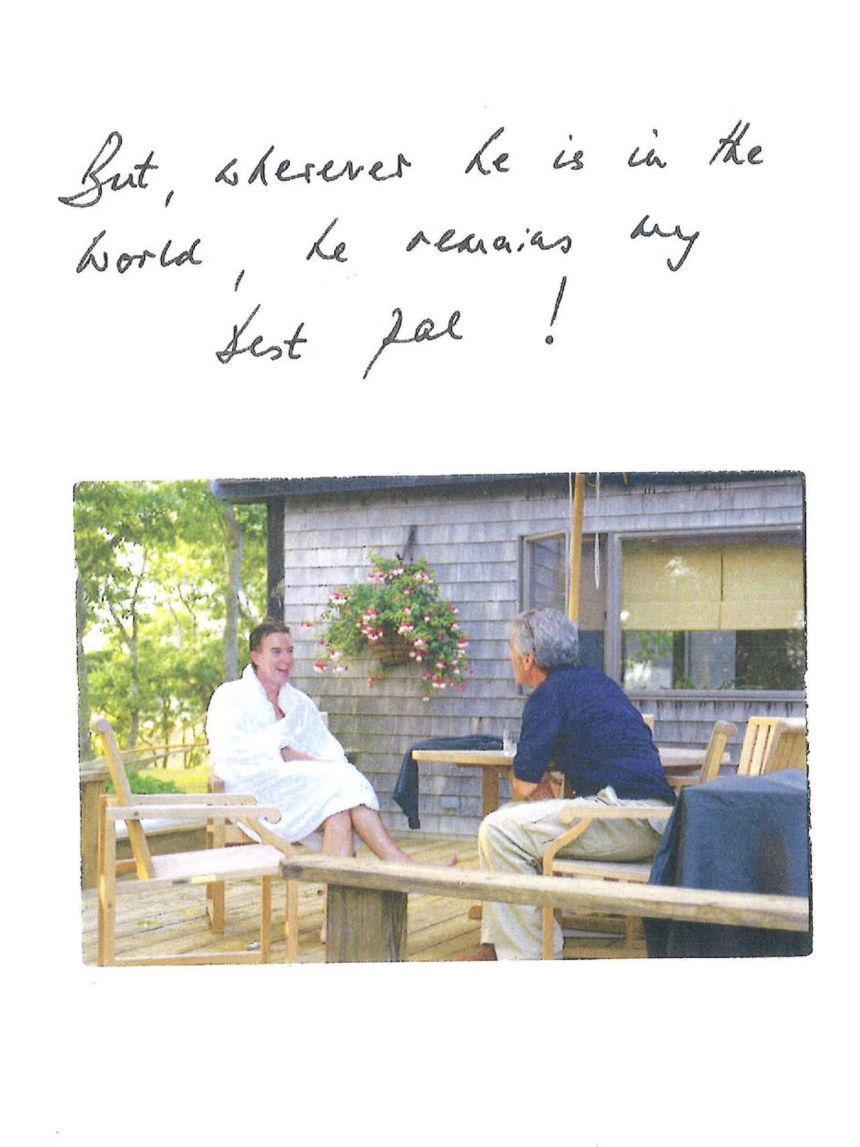 But, wherever he is in the
world, he remains my
best pal !